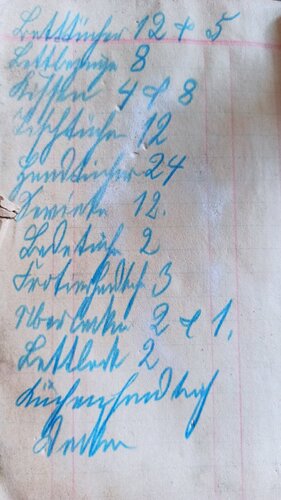 Betttücher 12 + 5
Bettbezüge 8
Kissen 4 + 8
Tischtücher 12
Handtücher 24
12.
Badetüch 2
Frotierhandtch 3
Überlaken 2 + 1.
Bettdeck 2
Küchenhandtuch
Decken